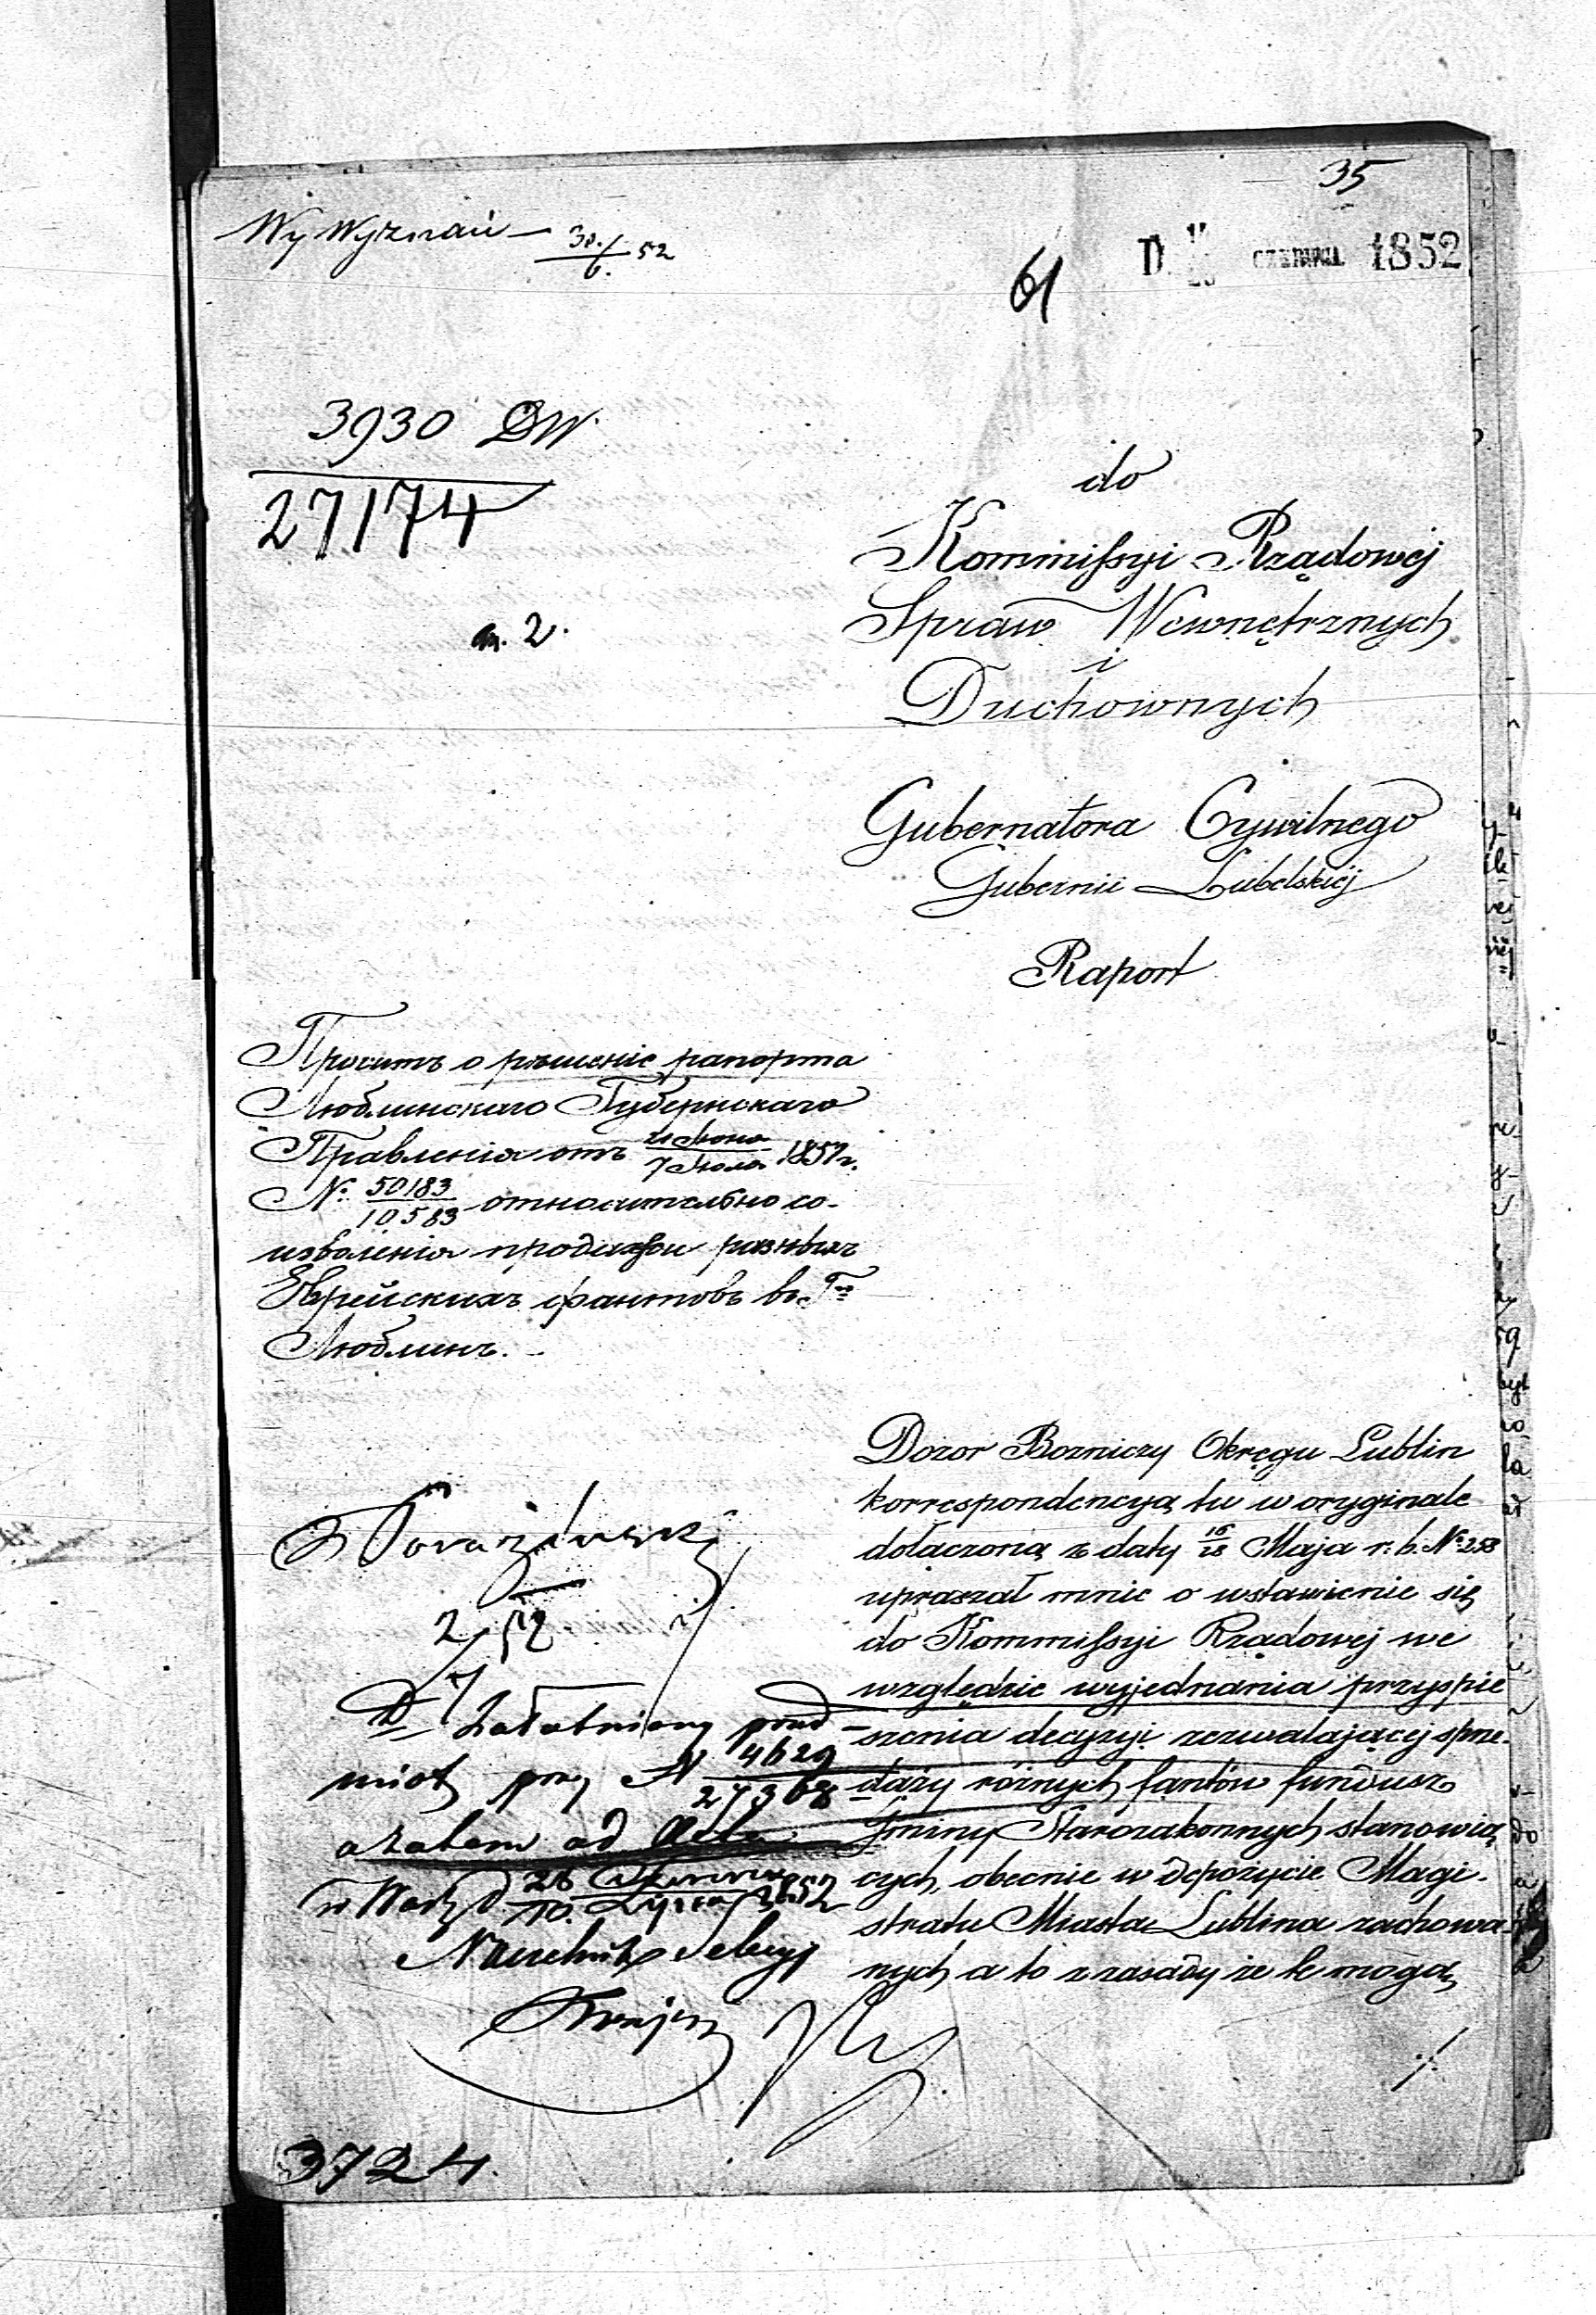 35
Wy Wyznań
61
D. CZERWCA 1852
3930 DW.
27174
2.
do
Kommissyi Rządowej
Spraw Wewnętrznych
i
Duchownych
Gubernatora Cywilnego
Gubernii Lubelskiej
Raport
Проситъ о рѣшеніе рапорта
Люблинскаго Губернскаго
Правленія отъ 7 Іюля
№ 50183/10583 относительно со-
изволенія продажи разныхъ
Еврейскихъ фантовъ въ Гдѣ
Люблинѣ.
Dozor Bożniczy Okręgu Lublin
korrespondencyą tu w oryginale
dołączoną z daty 16/28 Maja r. b. № 258
upraszał mnie o wstawienie się
do Kommissyi Rządowej we
względzie wyjednania przyspie
szenia decyzyi zezwalającej sprze-
daży różnych fantów fundusz
Gminy Starozakonnych stanowią
cych, obecnie w depozycie Magi-
stratu Miasta Lublina zachowa-
nych a to z zasady że te mogą
./.
2/7 52
Załatwiony przed-
miot przy N 4629/27368
a zatem od Akta
28 Czerwca/10. Lipca 1852
Naczelnik Sekcyi
3724.